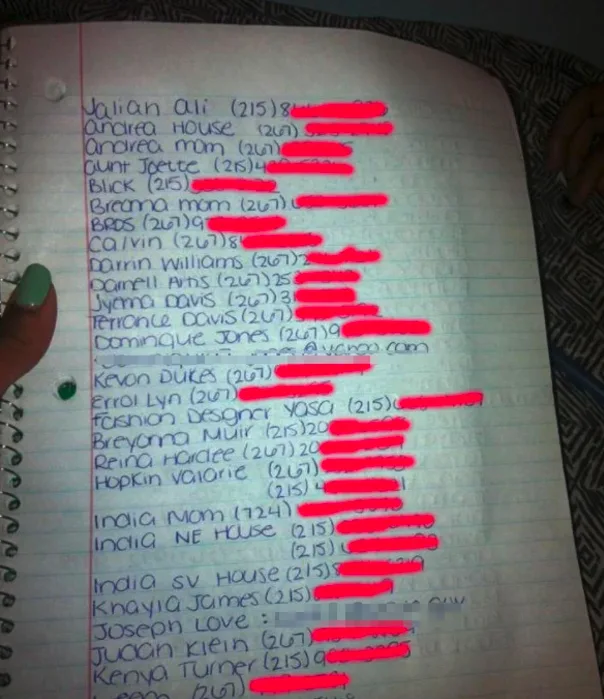 Jalian Ali (215)8
Andrea House (267)
Andrea mom (267)
Aunt Joette (215)4
Blick (215)
Breanna mom (267)
BROS (267)9
Calvin (267)8
Darrin Williams (267)2
Darnell Arns (267)25
Jyema Davis (267)3
Terrance Davis (267)
Dominique Jones (267)9
@yahoo.com
Kevon Dukes (267)
Errol Lyn (267)
Fashion Desgner Yasa (215)
Breyanna Muir (215)20
Reina Hardee (267)20
Hopkin Valarie (267)
(215)4
India Mom (724)
India NE House (215)
(215)
India SV House (215)
Khayla James (215)
Joseph Love :
Judan Klein (267)
Kenya Turner (215)9
(267)